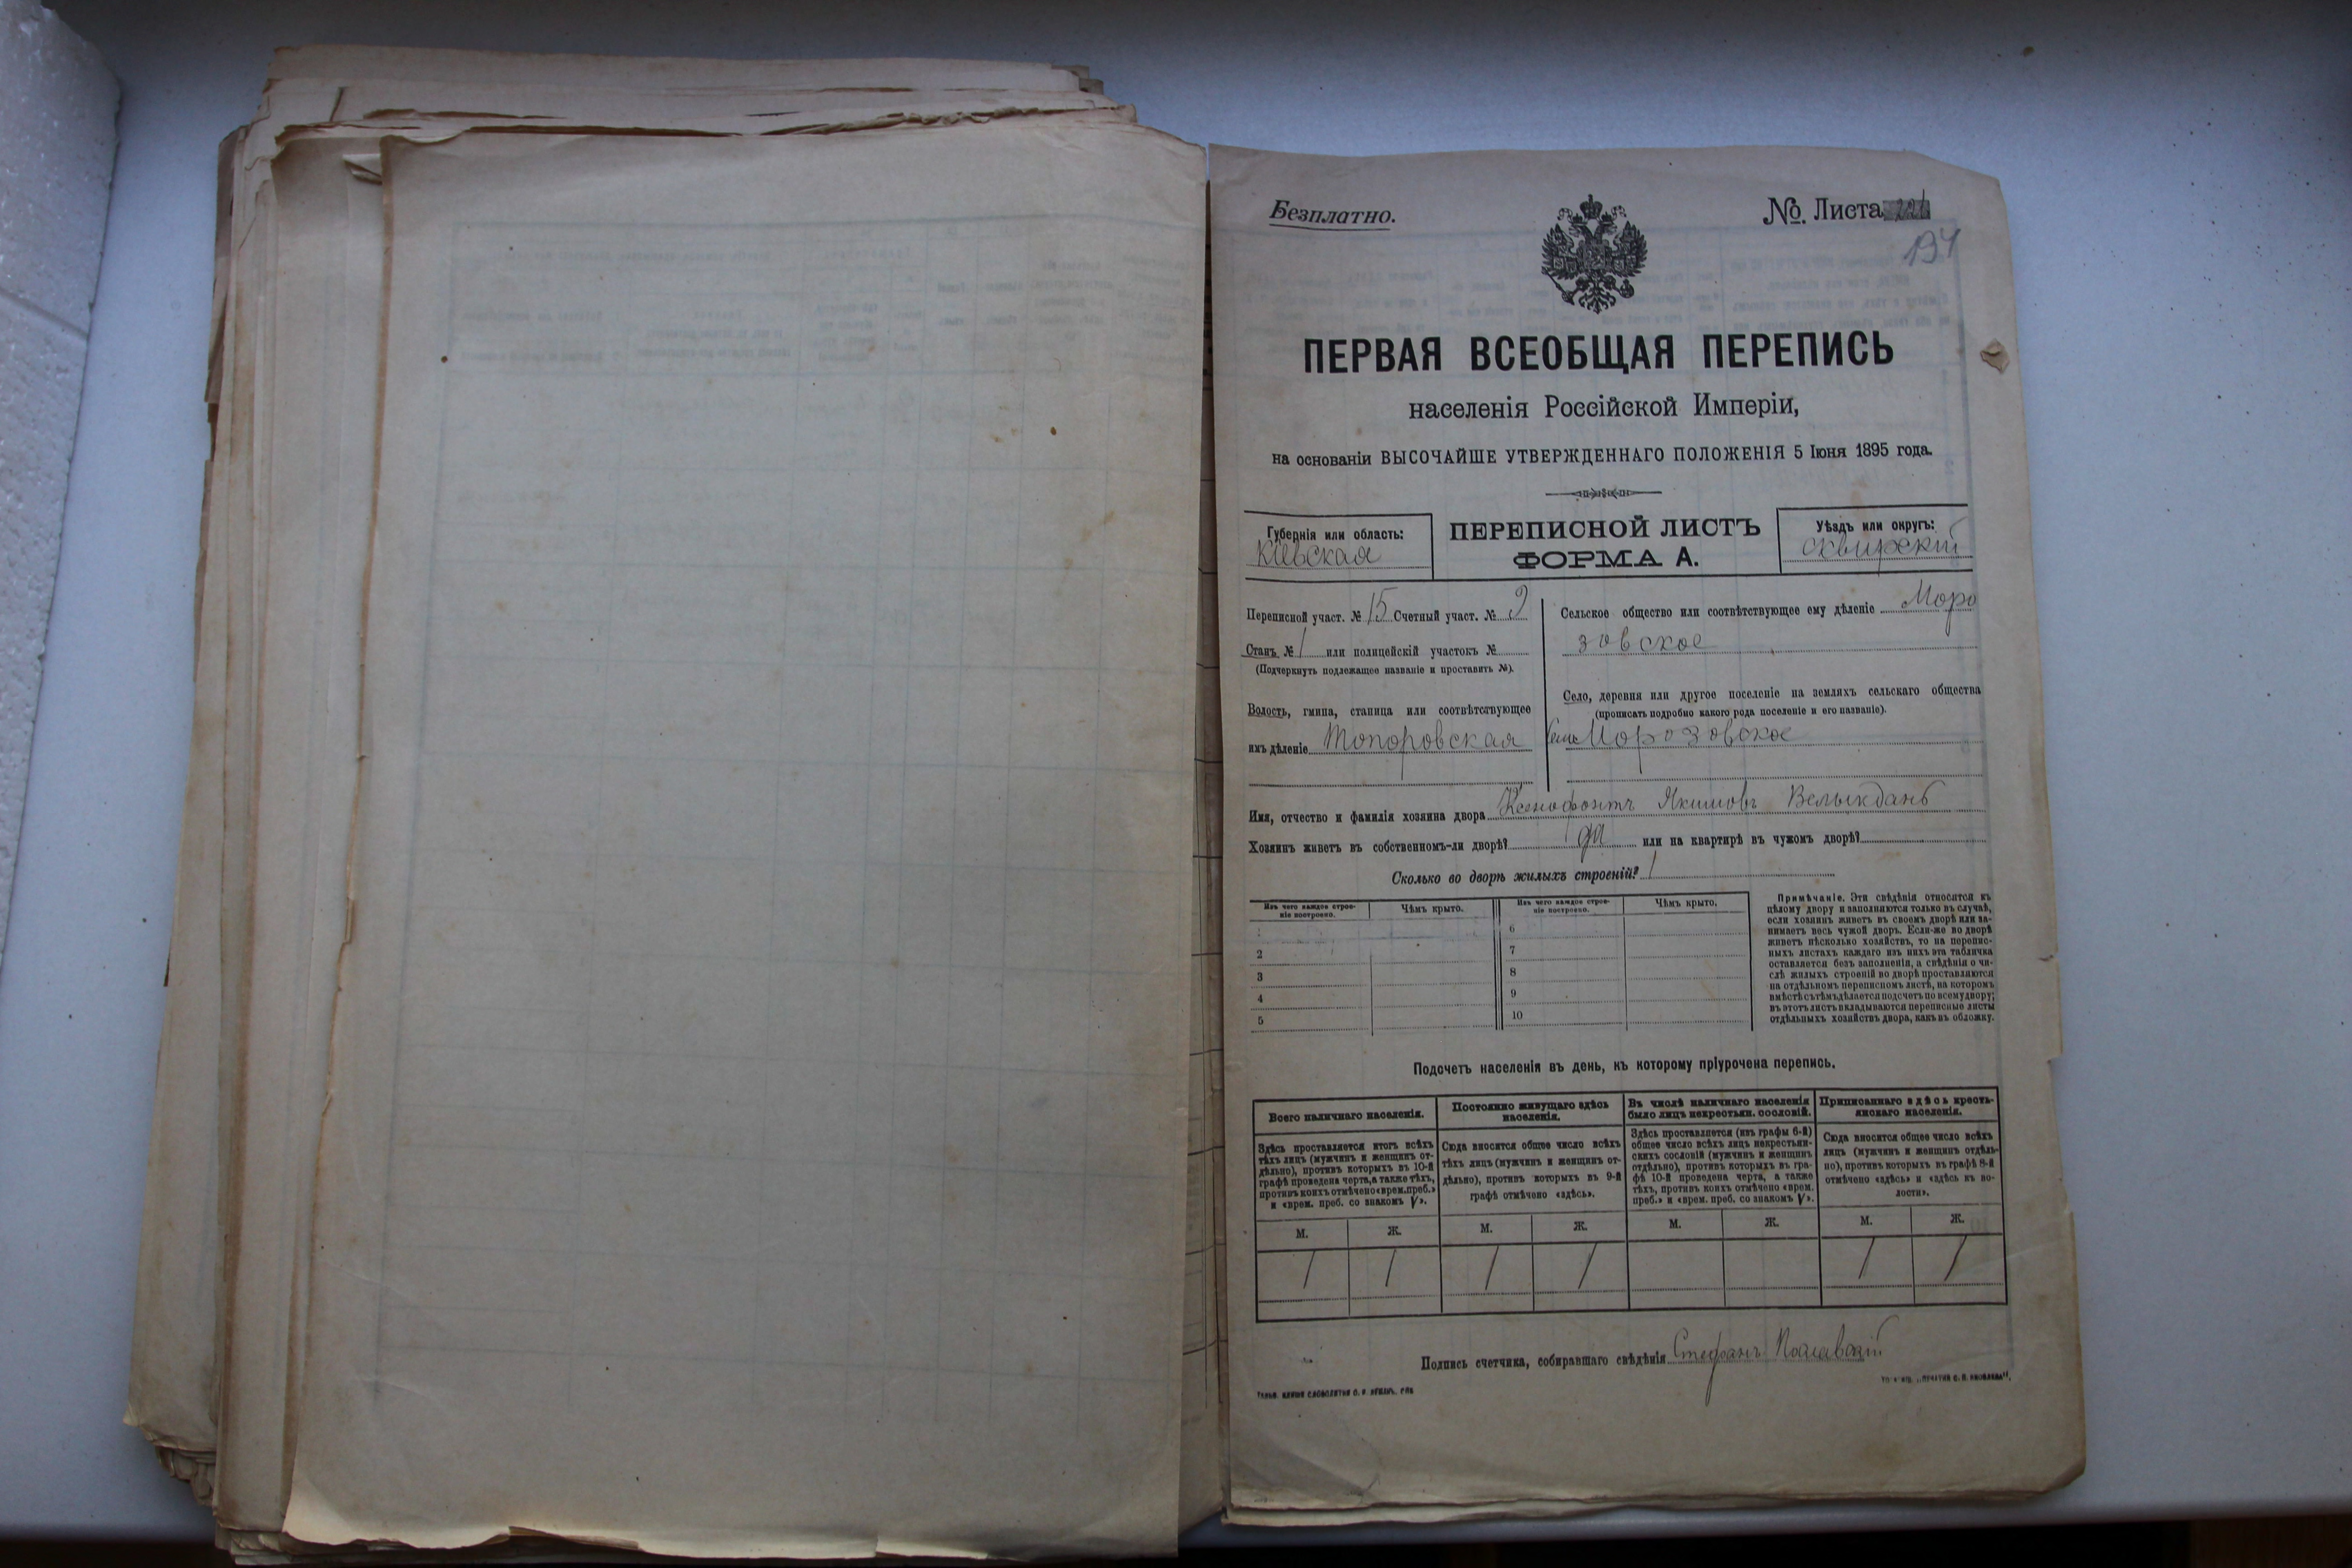 Безплатно.
№. Листа
194
ПЕРВАЯ ВСЕОБЩАЯ ПЕРЕПИСЬ
населенія Россійской Имперіи,
на основаніи ВЫСОЧАЙШЕ УТВЕРЖДЕННАГО ПОЛОЖЕНІЯ 5 Іюня 1895 года.
Губернія или область:
Кіевская
ПЕРЕПИСНОЙ ЛИСТЪ
ФОРМА А.
Уѣздъ или округъ:
Сквирскій
Переписной участ. № 15 Счетный участ. № 9
Станъ № 1 или полицейскій участокъ №
(Подчеркнуть подлежащее названіе и проставить №).
Волость, гмина, станица или соотвѣтствующее
имъ дѣленіе Топоровская
Сельское общество или соотвѣтствующее ему дѣленіе Моро
зовское
Село, деревня или другое поселеніе на земляхъ сельскаго общества
(прописать подробно какого рода поселеніе и его названіе).
Морозовское
Имя, отчество и фамилія хозяина двора Ксенофонтъ Якимовъ Велыкдань
Хозяинъ живетъ въ собственномъ-ли дворѣ? да или на квартирѣ въ чужомъ дворѣ?
Сколько во дворѣ жилыхъ строеній? 1
Изъ чего каждое строе-
ніе построено.
Чѣмъ крыто.
Изъ чего каждое строе-
ніе построено.
Чѣмъ крыто.
1
6
2
7
3
8
4
9
5
10
Примѣчаніе. Эти свѣдѣнія относятся къ
цѣлому двору и заполняются только въ случаѣ,
если хозяинъ живетъ въ своемъ дворѣ или за-
нимаетъ весь чужой дворъ. Если-же во дворѣ
живетъ нѣсколько хозяйствъ, то на перепис-
ныхъ листахъ каждаго изъ нихъ эта табличка
оставляется безъ заполненія, а свѣдѣнія о чи-
слѣ жилыхъ строеній во дворѣ проставляются
на отдѣльномъ переписномъ листѣ, на которомъ
вмѣстѣ съ тѣмъ дѣлается подсчетъ по всему двору;
въ этотъ листъ вкладываются переписные листы
отдѣльныхъ хозяйствъ двора, какъ въ обложку.
Подсчетъ населенія въ день, къ которому пріурочена перепись.
Всего наличнаго населенія.
Постоянно живущаго здѣсь
населенія.
Въ числѣ наличнаго населенія
было лицъ некрестьян. сословій.
Приписаннаго здѣсь кресть-
янскаго населенія.
Здѣсь проставляется итогъ всѣхъ
тѣхъ лицъ (мужчинъ и женщинъ от-
дѣльно), противъ которыхъ въ 10-й
графѣ проведена черта, а также тѣхъ,
противъ коихъ отмѣчено «врем. преб.»
и «врем. преб. со знакомъ V».
Сюда вносится общее число всѣхъ
тѣхъ лицъ (мужчинъ и женщинъ от-
дѣльно), противъ которыхъ въ 9-й
графѣ отмѣчено «здѣсь».
Здѣсь проставляется (изъ графы 6-й)
общее число всѣхъ лицъ некрестьян-
скихъ сословій (мужчинъ и женщинъ
отдѣльно), противъ которыхъ въ гра-
фѣ 10-й проведена черта, а также
тѣхъ, противъ коихъ отмѣчено «врем.
преб.» и «врем. преб. со знакомъ V».
Сюда вносится общее число всѣхъ
лицъ (мужчинъ и женщинъ отдѣль-
но), противъ которыхъ въ графѣ 8-й
отмѣчено «здѣсь» и «здѣсь въ во-
лости».
М. Ж. М. Ж. М. Ж. М. Ж.
1 1 1 1 1 1
Подпись счетчика, собиравшаго свѣдѣнія Стефанъ